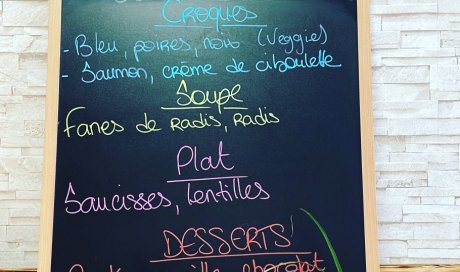 Croques
- Bleu, poires, noix (Veggie)
- Saumon, crème de ciboulette
Soupe
Fanes de radis, radis
Plat
Saucisses, lentilles
DESSERTS
chocolat